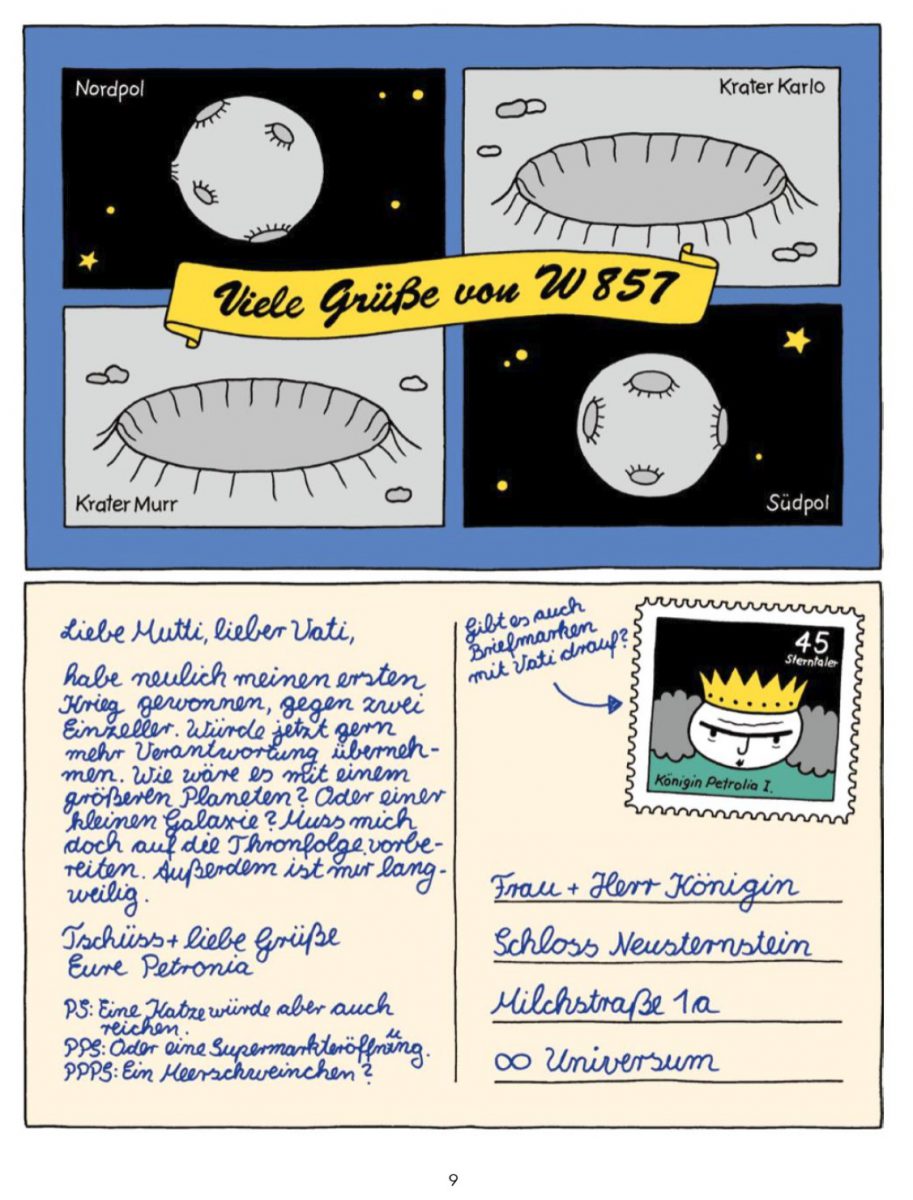 Nordpol
Krater Karlo
Viele Grüße von W 857
Krater Murr
Südpol
Liebe Mutti, lieber Vati,
habe neulich meinen ersten
Krieg gewonnen, gegen zwei
Einzeller. Würde jetzt gern
mehr Verantwortung überneh-
men. Wie wäre es mit einem
größeren Planeten? Oder einer
kleinen Galaxie? Muss mich
doch auf die Thronfolge vorbe-
reiten. Außerdem ist mir lang-
weilig.
Tschüss + liebe Grüße
Eure Petronia
PS: Eine Katze würde aber auch
reichen.
PPS: Oder eine Supermarkteröffnung.
PPPS: Ein Meerschweinchen?
Gibt es auch
Briefmarken
mit Vati drauf?
45
Sterntaler
Königin Petrolia I.
Frau + Herr Königin
Schloss Neusternstein
Milchstraße 1a
∞ Universum
9